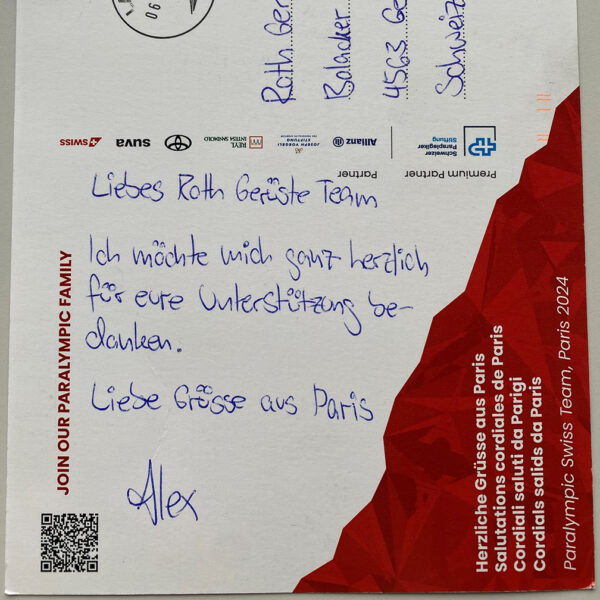 06
Roth Ger
Balacker
4563 Ge
Schweiz
SWISS
suva
REYL
INTESA SANPAOLO
JOSEPH VOEGELI
STIFTUNG
Allianz
Partner
Schweizer
Paraplegiker
Stiftung
Premium Partner
Liebes Roth Gerüste Team
Ich möchte mich ganz herzlich
für eure Unterstützung be-
danken.
Liebe Grüsse aus Paris
Alex
JOIN OUR PARALYMPIC FAMILY
Herzliche Grüsse aus Paris
Salutations cordiales de Paris
Cordiali saluti da Parigi
Cordials salids da Paris
Paralympic Swiss Team, Paris 2024